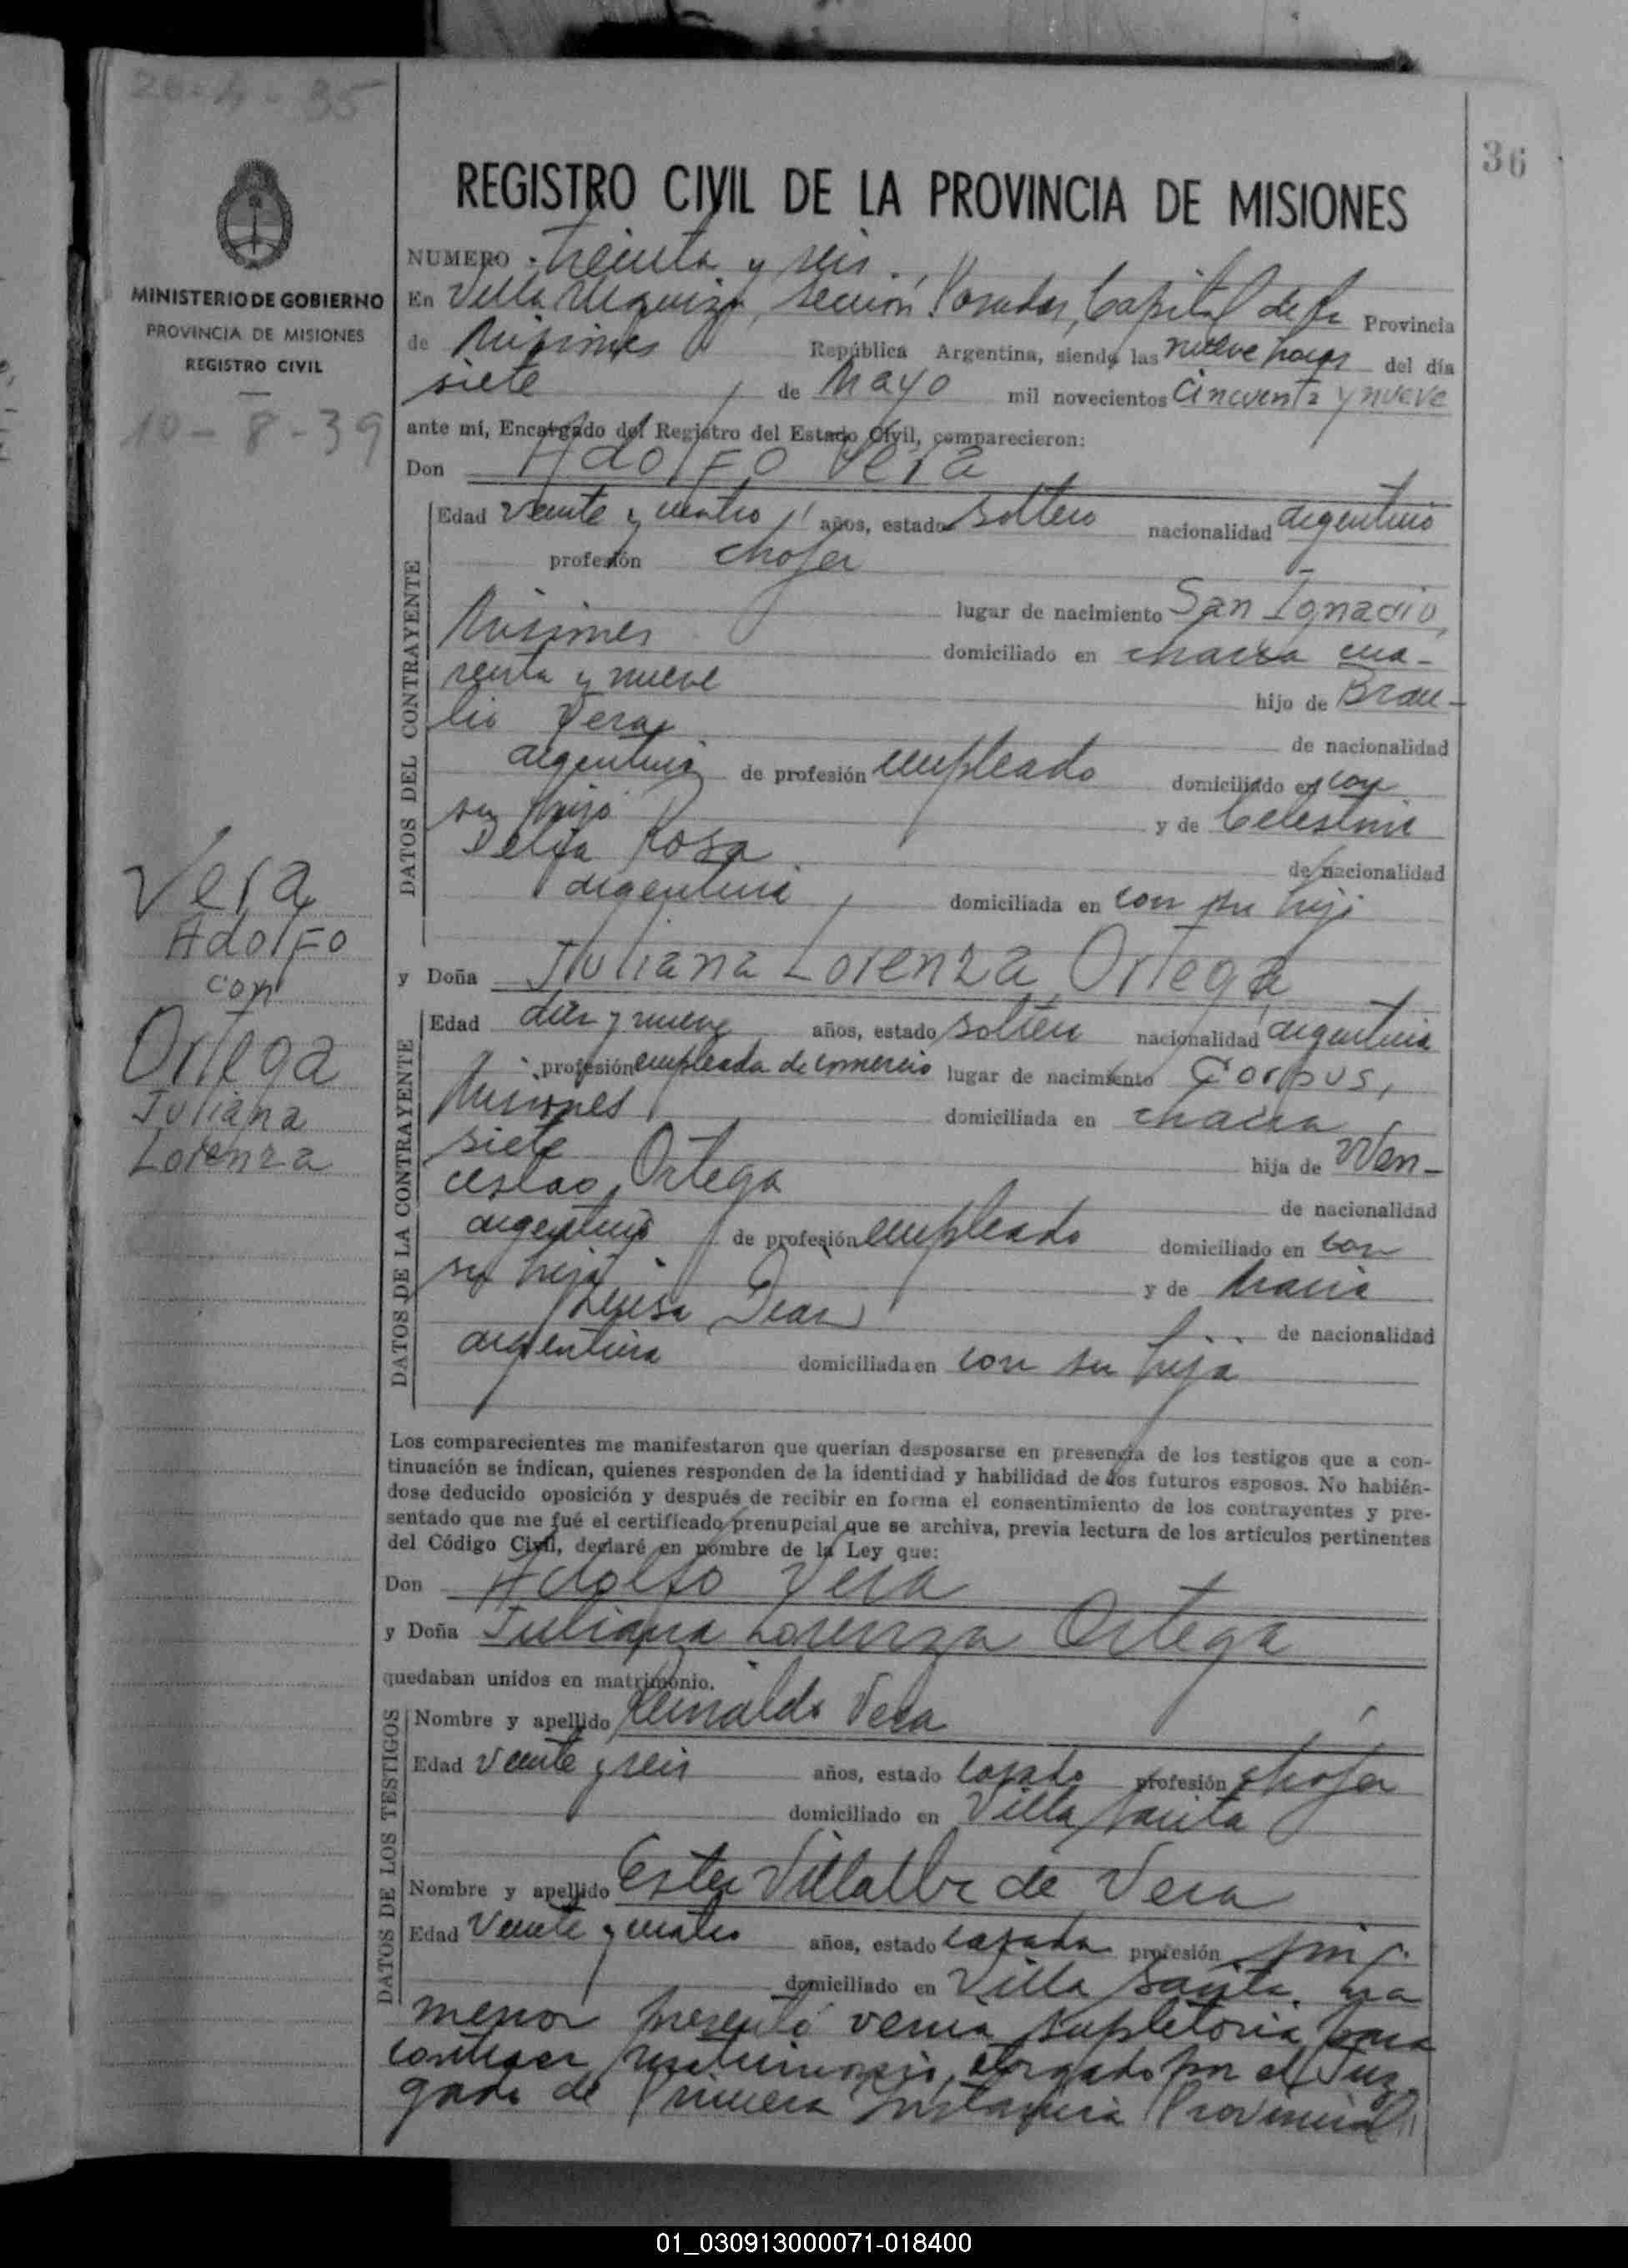 26-4-35
36
REGISTRO CIVIL DE LA PROVINCIA DE MISIONES
MINISTERIO DE GOBIERNO
PROVINCIA DE MISIONES
REGISTRO CIVIL
10-8-39
NUMERO treinta y seis.
En Villa Urquiza, Sección Posadas, Capital de la Provincia
de Misiones República Argentina, siendo las nueve horas del día
siete de Mayo mil novecientos Cincuenta y nueve
ante mí, Encargado del Registro del Estado Civil, comparecieron:
Don Adolfo Vera
DATOS DEL CONTRAYENTE
Edad veinte y cuatro años, estado soltero nacionalidad argentino
profesión chofer
lugar de nacimiento San Ignacio,
Misiones domiciliado en chacra cua-
renta y nueve hijo de Brau-
lio Vera de nacionalidad
argentina de profesión empleado domiciliado en con
su hijo y de Celestina
Delia Rosa de nacionalidad
argentina domiciliada en con su hijo
Vera
Adolfo
con
Ortega
Juliana
Lorenza
y Doña Juliana Lorenza Ortega
DATOS DE LA CONTRAYENTE
Edad diez y nueve años, estado soltera nacionalidad argentina
profesión empleada de comercio lugar de nacimiento Corpus,
Misiones domiciliada en chacra
siete hija de Wen-
ceslao Ortega de nacionalidad
argentino de profesión empleado domiciliado en con
su hija y de Maria
de nacionalidad
argentina domiciliada en con su hija
Los comparecientes me manifestaron que querían desposarse en presencia de los testigos que a con-
tinuación se indican, quienes responden de la identidad y habilidad de los futuros esposos. No habién-
dose deducido oposición y después de recibir en forma el consentimiento de los contrayentes y pre-
sentado que me fué el certificado prenupcial que se archiva, previa lectura de los artículos pertinentes
del Código Civil, declaré en nombre de la Ley que:
Don Adolfo Vera
y Doña Juliana Lorenza Ortega
quedaban unidos en matrimonio.
DATOS DE LOS TESTIGOS
Nombre y apellido Reinaldo Vera
Edad veinte y seis años, estado casado profesión chofer
domiciliado en Villa Sarita
Nombre y apellido Ester Villalba de Vera
Edad Veinte y cuatro años, estado casada profesión sin
domiciliado en Villa Sarita. La
menor presentó venia supletoria para
contraer matrimonio, otorgado por el Juz
gado de Primera Instancia Provincial
01_030913000071-018400